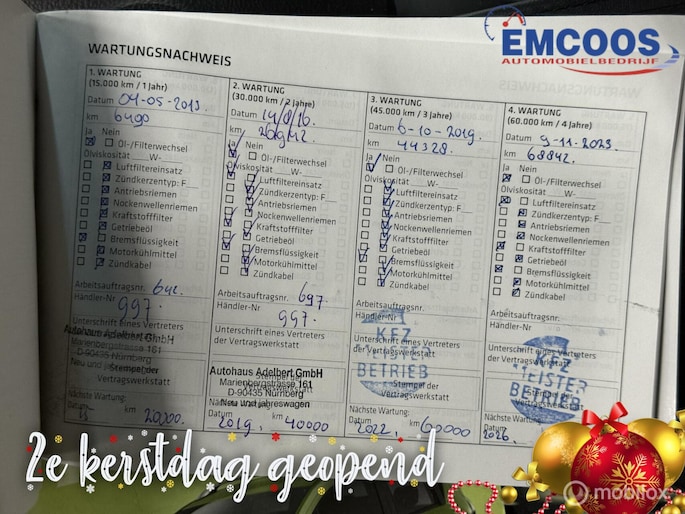 EMCOOS
AUTOMOBIELBEDRIJF
WARTUNGSNACHWEIS
1. WARTUNG
(15.000 km / 1 Jahr)
Datum 04-05-2013.
km 6490
Ja Nein
Öl-/Filterwechsel
Ölviskosität W-
Luftfiltereinsatz
Zündkerzentyp: F
Antriebsriemen
Nockenwellenriemen
Kraftstofffilter
Getriebeöl
Bremsflüssigkeit
Motorkühlmittel
Zündkabel
Arbeitsauftragsnr. 642.
Händler-Nr
997.
Unterschrift eines Vertreters
der Vertragswerkstatt
Autohaus Adelbert GmbH
Marienbergstrasse 161
D-90435 Nürnberg
Stempel der
Vertragswerkstatt
Nächste Wartung:
Datum km 20000.
2. WARTUNG
(30.000 km / 2 Jahre)
Datum 14/8/16.
km
Ja Nein
Öl-/Filterwechsel
Ölviskosität W-
Luftfiltereinsatz
Zündkerzentyp: F
Antriebsriemen
Nockenwellenriemen
Kraftstofffilter
Getriebeöl
Bremsflüssigkeit
Motorkühlmittel
Zündkabel
Arbeitsauftragsnr. 697
Händler-Nr
997.
Unterschrift eines Vertreters
der Vertragswerkstatt
Autohaus Adelbert GmbH
Marienbergstrasse 161
D-90435 Nürnberg
Neu und Jahreswagen
Datum 2019, 40000
3. WARTUNG
(45.000 km / 3 Jahre)
Datum 6-10-2019.
km 44328.
Ja Nein
Öl-/Filterwechsel
Ölviskosität W-
Luftfiltereinsatz
Zündkerzentyp: F
Antriebsriemen
Nockenwellenriemen
Kraftstofffilter
Getriebeöl
Bremsflüssigkeit
Motorkühlmittel
Zündkabel
Arbeitsauftragsnr.
Händler-Nr
Unterschrift eines Vertreters
der Vertragswerkstatt
KFZ
MEISTER
BETRIEB
Stempel der
Vertragswerkstatt
Nächste Wartung:
Datum 2022, km 60000
4. WARTUNG
(60.000 km / 4 Jahre)
Datum 9-11-2023.
km 68842.
Ja Nein
Öl-/Filterwechsel
Ölviskosität W-
Luftfiltereinsatz
Zündkerzentyp: F
Antriebsriemen
Nockenwellenriemen
Kraftstofffilter
Getriebeöl
Bremsflüssigkeit
Motorkühlmittel
Zündkabel
Arbeitsauftragsnr.
Händler-Nr.
Unterschrift eines Vertreters
der Vertragswerkstatt
KFZ
MEISTER
BETRIEB
Stempel der
Vertragswerkstatt
Nächste Wartung:
Datum 2026.
2e kerstdag geopend
mobilox